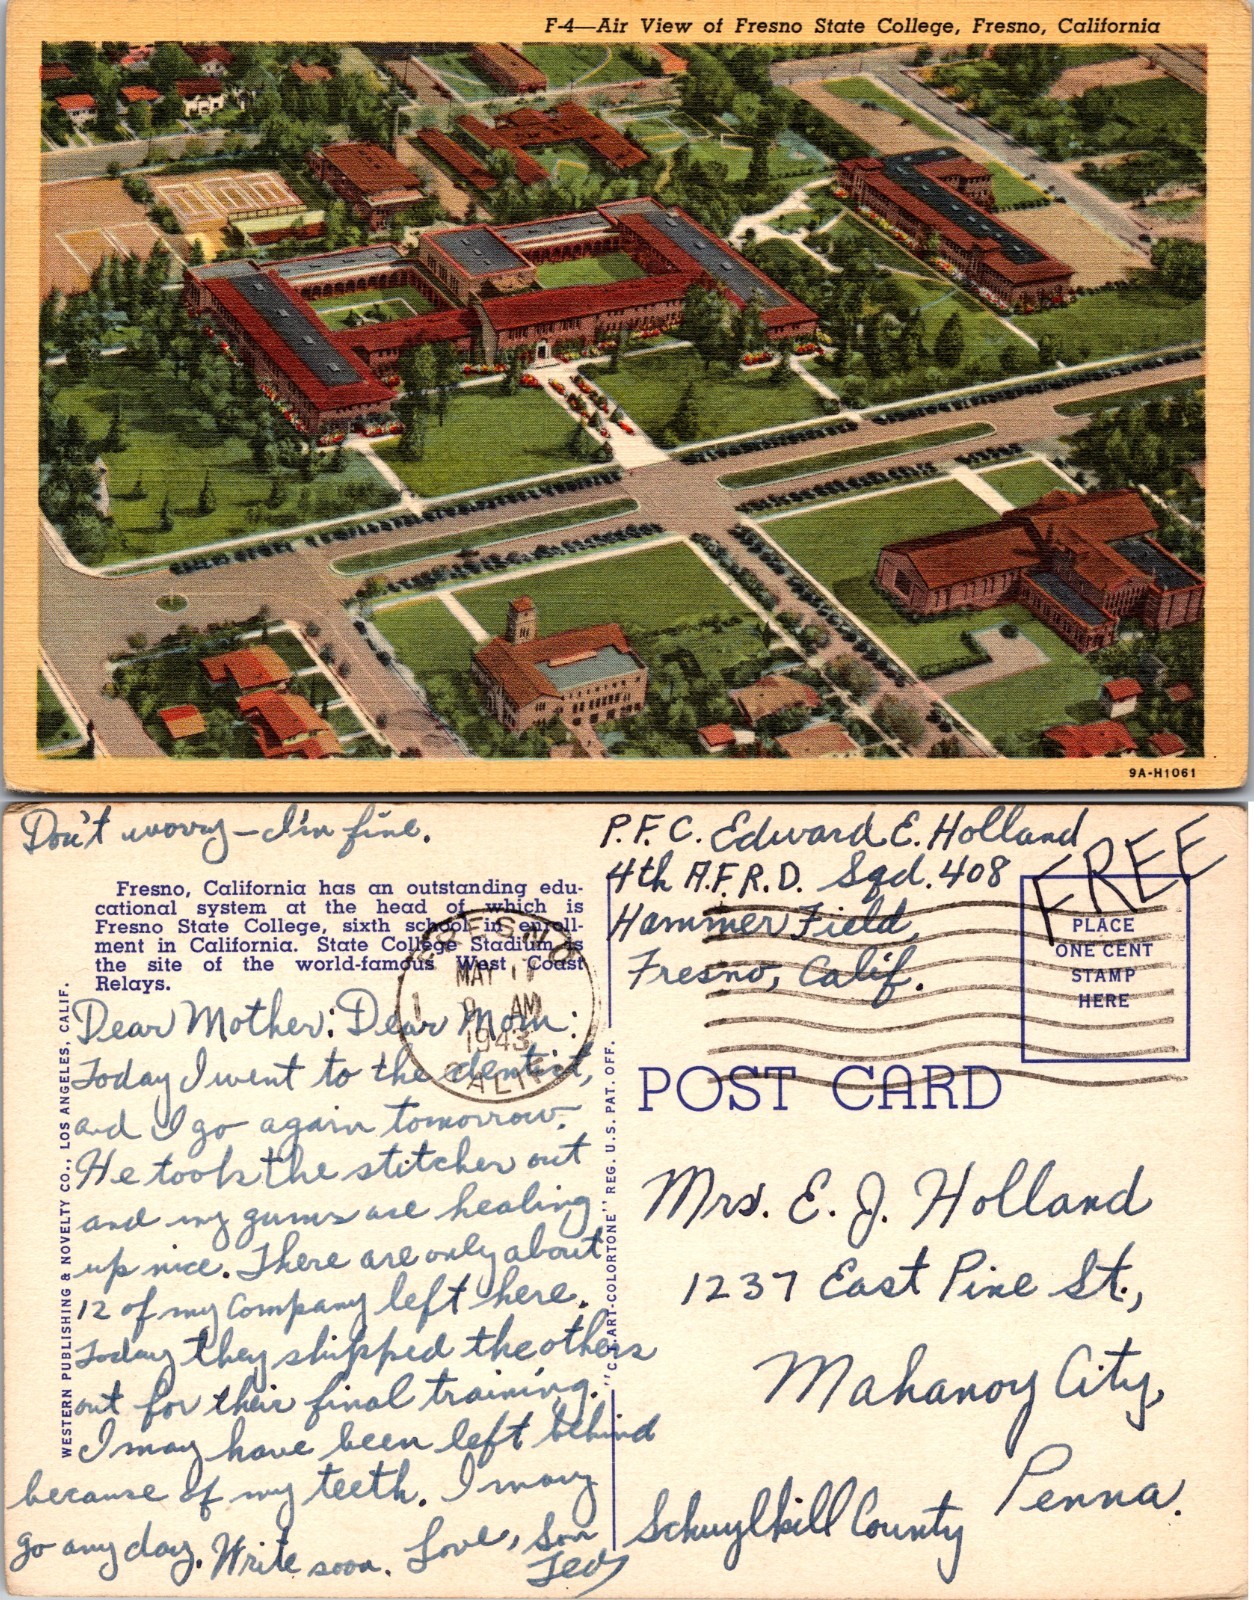 F-4—Air View of Fresno State College, Fresno, California
9A-H1061
Don't worry—I'm fine.
Fresno, California has an outstanding edu-
cational system at the head of which is
Fresno State College, sixth school in enroll-
ment in California. State College Stadium is
the site of the world-famous West Coast
Relays.
Dear Mother: Dear Mom:
Today I went to the dentist,
and I go again tomorrow.
He took the stitches out
and my gums are healing
up nice. There are only about
12 of my Company left here.
Today they shipped the others
out for their final training.
I may have been left behind
because of my teeth. I may
go any day. Write soon. Love, Son
Ted
WESTERN PUBLISHING & NOVELTY CO., LOS ANGELES, CALIF.
FRESNO
MAY 17
AM
1943
CALIF.
P.F.C. Edward E. Holland
4th A.F.R.D. Sqd. 408
Hammer Field,
Fresno, Calif.
FREE
PLACE
ONE CENT
STAMP
HERE
POST CARD
ART-COLORTONE" REG. U.S. PAT. OFF.
Mrs. E. J. Holland
1237 East Pine St.,
Mahanoy City,
Penna.
Schuylkill County